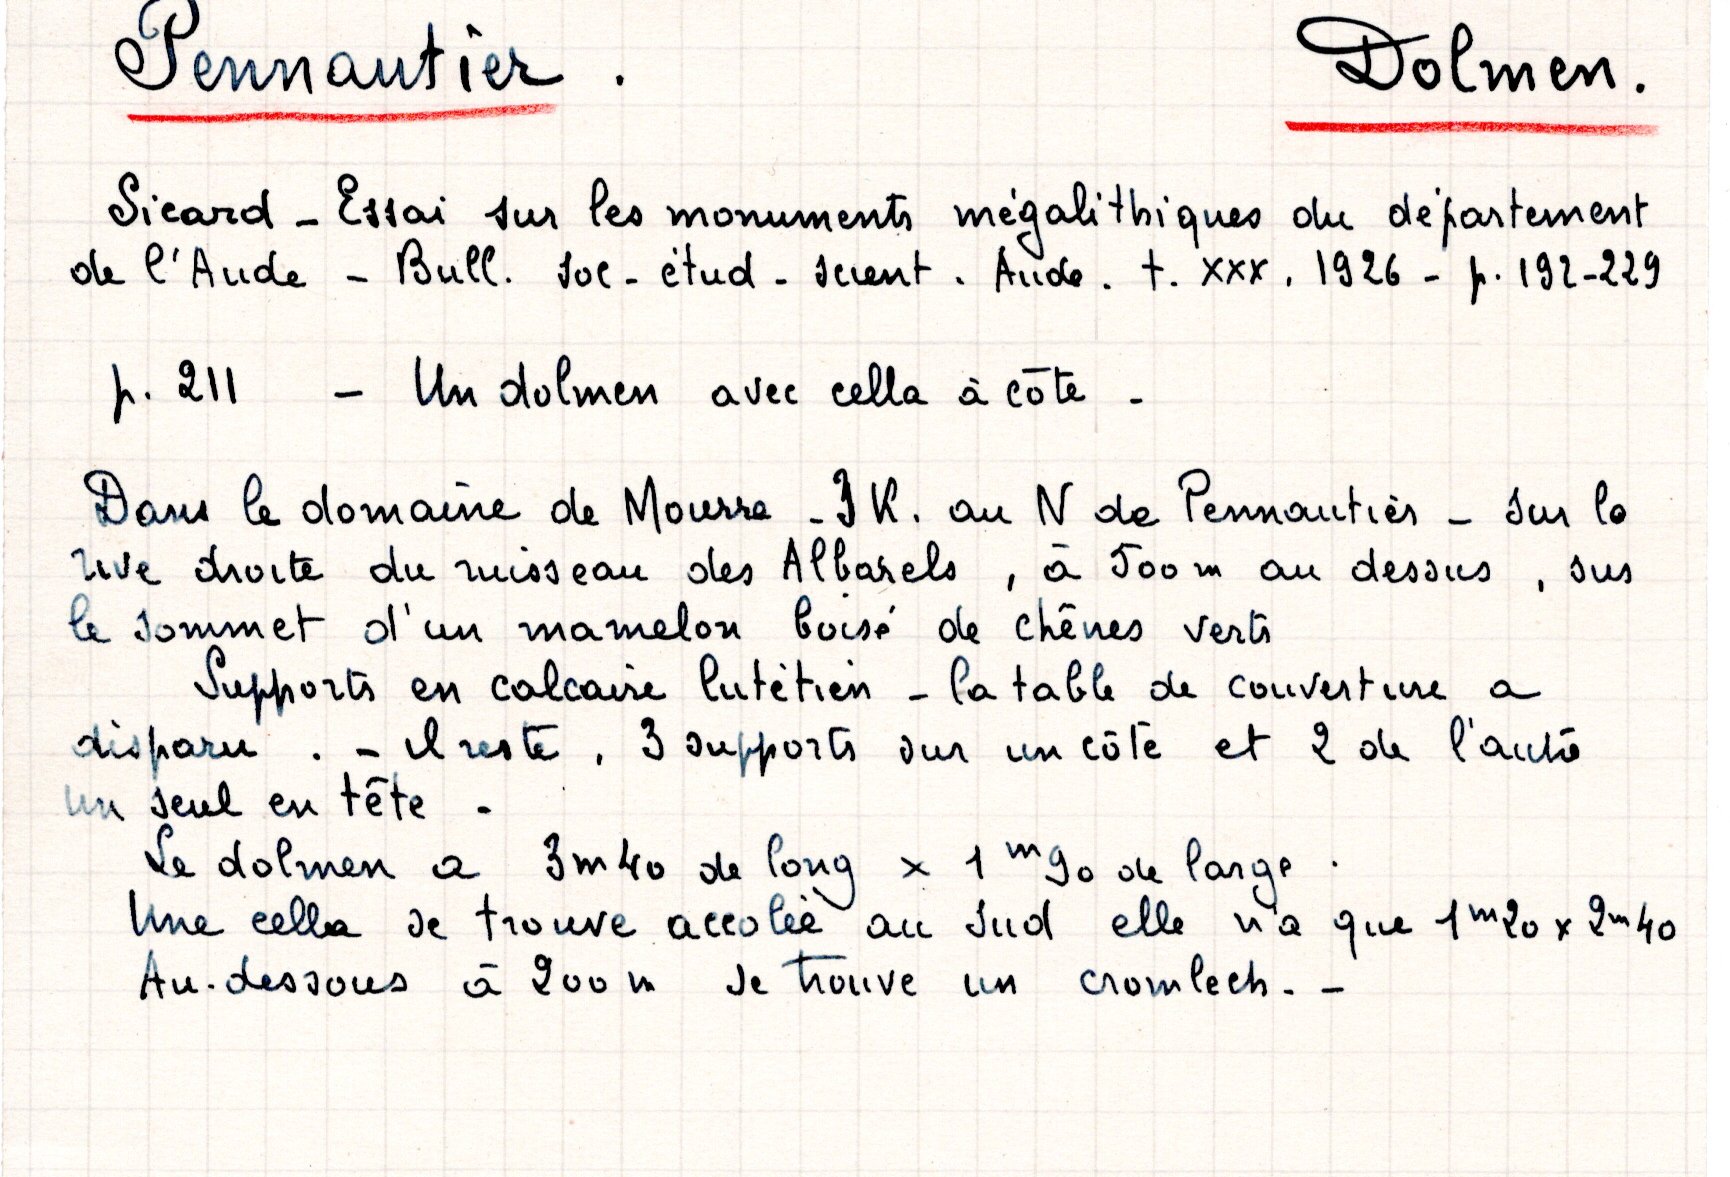 Pennautier . Dolmen.
Sicard - Essai sur les monuments mégalithiques du département
de l'Aude - Bull. soc - étud - scient . Aude . t. XXX . 1926 - p. 192-229
p. 211 - Un dolmen avec cella à côté -
Dans le domaine de Mourre - 3 K. au N de Pennautier - sur la
rive droite du ruisseau des Albarels , à 500 m au dessus , sur
le sommet d'un mamelon boisé de chênes verts
Supports en calcaire lutétien - la table de couverture a
disparu . - il reste , 3 supports sur un côté et 2 de l'autre
un seul en tête -
Le dolmen a 3m40 de long x 1 m 90 de large .
Une cella se trouve accolée au sud elle n'a que 1m20 x 2m40
Au-dessous à 200 m se trouve un cromlech. -